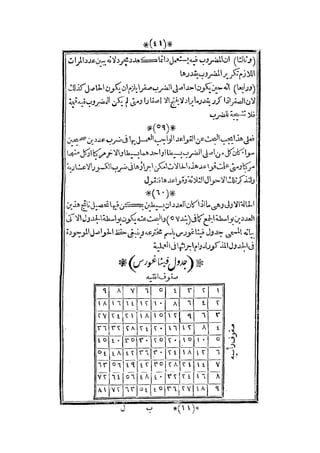 *(٤١)*
(وثالثا) ان المضروب فيه يستعمل دائما كعدد مجرد لانه يبين عدد المرات
اللازم تكرير المضروب بقدرها
(ورابعا) انه حين يكون احد اصلى الضرب صفرا يلزم ان يكون الحاصل كذلك
لان الصفر اذا كرر بقدر ما يراد لا ينتج الا اصفارا ومتى لم يكن المضروب فيه قيمة
فلا نتيجة للضرب
*(٥٩)*
فعلى هذا يجب البحث عن القواعد الواجب العمل بها فى ضرب عددين صحيحين
سواء كان كل من اصلى الضرب بسيطا او احدهما بسيطا والاخر مركبا او كل منهما
مركبا ومتى علمت قواعد هذا الحالات امكن اجراؤها فى ضرب الكسور الاعشارية
ولنذكر تلك الاحوال الثلاثة وقواعدها فنقول
*(٦٠)*
الحالة الاولى وهى ما اذا كان العددان بسيطين يمكن فيها تحصيل ناتج هذين
العددين بواسطة الجمع كما فى (بند ٥٧) والبحث عنه يكون بواسطة الجدول الاتى
بيانه المسمى جدول فيثاغورس باسم مخترعه وينبغى حفظ الحواصل الموجودة
فى الجدول المذكور لدوام اجرائها فى العملية
*(جدول فيثاغورس)*
صفوف افقية
١ ٢ ٣ ٤ ٥ ٦ ٧ ٨ ٩
٢ ٤ ٦ ٨ ١٠ ١٢ ١٤ ١٦ ١٨
٣ ٦ ٩ ١٢ ١٥ ١٨ ٢١ ٢٤ ٢٧
٤ ٨ ١٢ ١٦ ٢٠ ٢٤ ٢٨ ٣٢ ٣٦
٥ ١٠ ١٥ ٢٠ ٢٥ ٣٠ ٣٥ ٤٠ ٤٥
٦ ١٢ ١٨ ٢٤ ٣٠ ٣٦ ٤٢ ٤٨ ٥٤
٧ ١٤ ٢١ ٢٨ ٣٥ ٤٢ ٤٩ ٥٦ ٦٣
٨ ١٦ ٢٤ ٣٢ ٤٠ ٤٨ ٥٦ ٦٤ ٧٢
٩ ١٨ ٢٧ ٣٦ ٤٥ ٥٤ ٦٣ ٧٢ ٨١
صفوف رأسية
*(١١)* ب ل